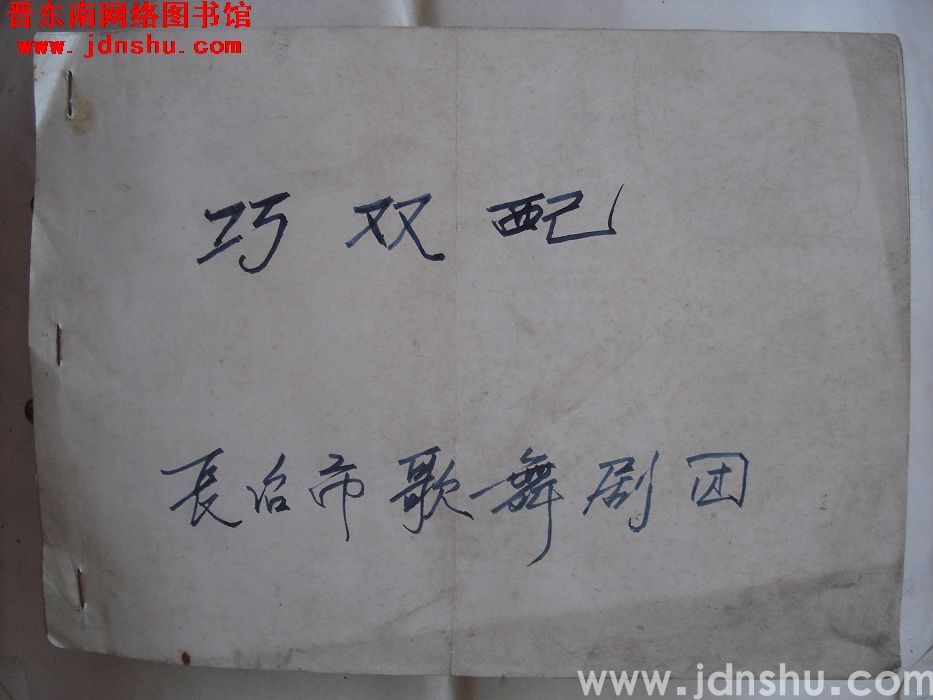 晋东南网络图书馆
www. jdnshu. com
巧双配
長治市歌舞剧团
www.jdnshu.com